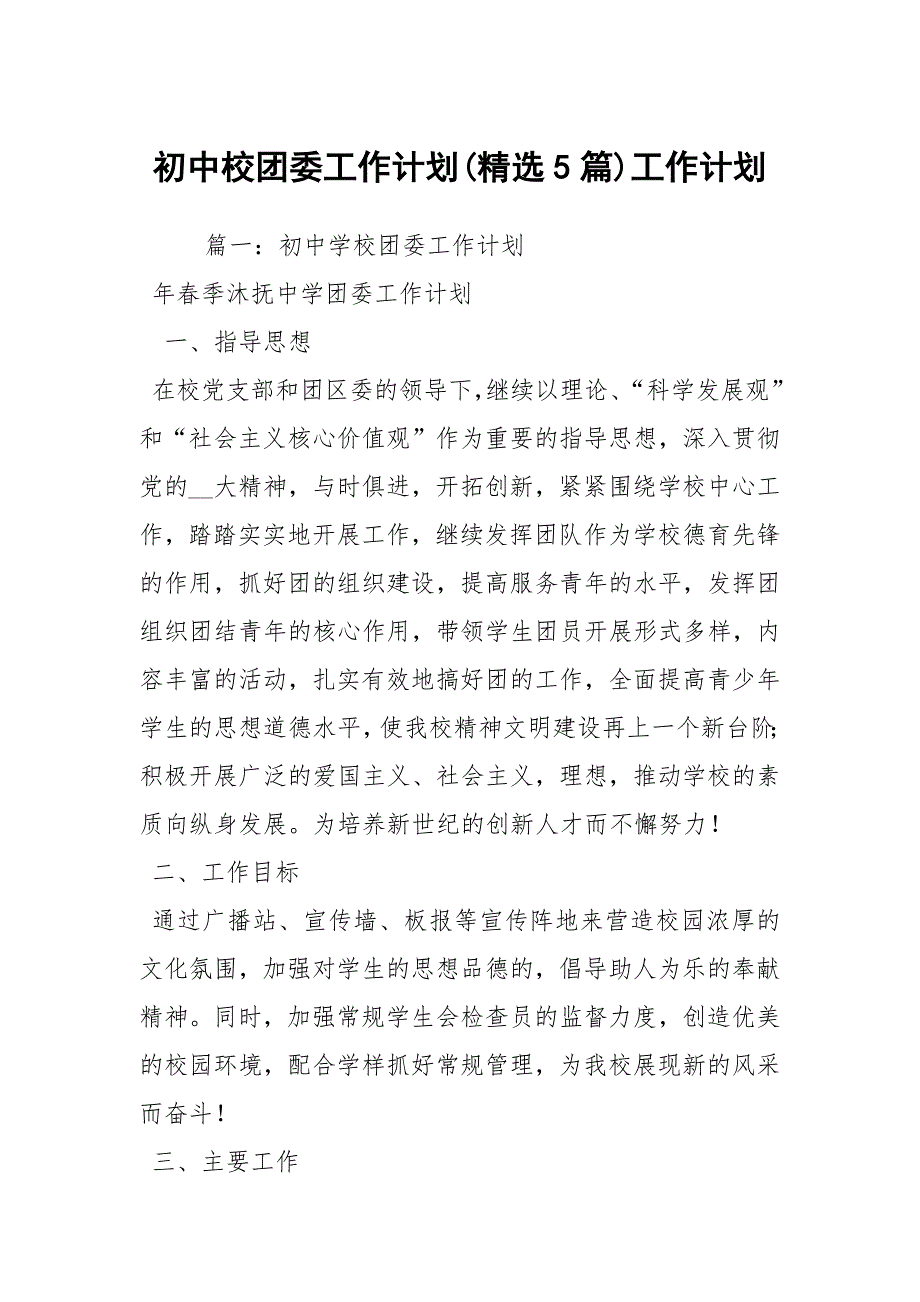 初中校团委工作计划(精选5篇)工作计划
篇一：初中学校团委工作计划
年春季沐抚中学团委工作计划
一、指导思想
在校党支部和团区委的领导下，继续以理论、“科学发展观”
和“社会主义核心价值观”作为重要的指导思想，深入贯彻
党的__大精神，与时俱进，开拓创新，紧紧围绕学校中心工
作，踏踏实实地开展工作，继续发挥团队作为学校德育先锋
的作用，抓好团的组织建设，提高服务青年的水平，发挥团
组织团结青年的核心作用，带领学生团员开展形式多样，内
容丰富的活动，扎实有效地搞好团的工作，全面提高青少年
学生的思想道德水平，使我校精神文明建设再上一个新台阶；
积极开展广泛的爱国主义、社会主义，理想，推动学校的素
质向纵身发展。为培养新世纪的创新人才而不懈努力！
二、工作目标
通过广播站、宣传墙、板报等宣传阵地来营造校园浓厚的
文化氛围，加强对学生的思想品德的，倡导助人为乐的奉献
精神。同时，加强常规学生会检查员的监督力度，创造优美
的校园环境，配合学样抓好常规管理，为我校展现新的风采
而奋斗！
三、主要工作